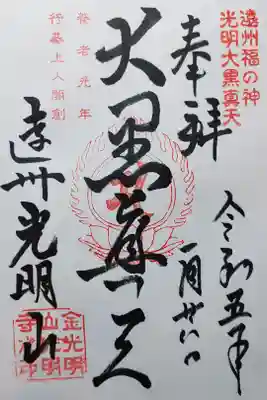 遠州福の神
光明大黒真天
奉拝
令和五年
一月廿八日
大黒真天
養老元年
行基上人開創
遠州光明山
金光明
山光明
寺之印